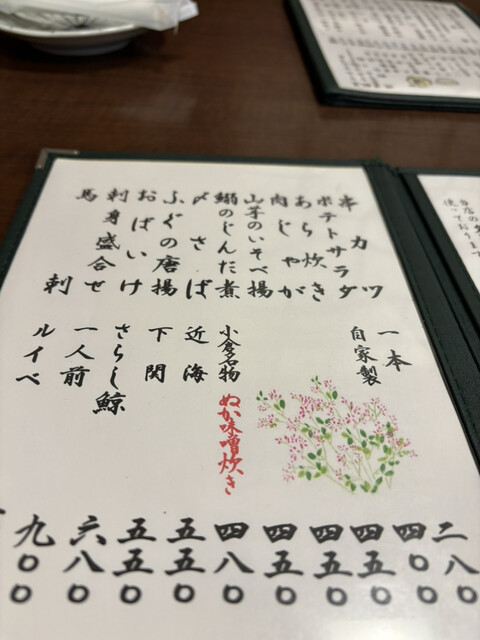 使っております
串カツ 一本 二八〇
ポテトサラダ 自家製 四〇〇
あら炊き 四五〇
肉じゃが 四五〇
山芋のいそべ揚 四五〇
鰯のじんだ煮 小倉名物 ぬか味噌炊き 四八〇
〆さば 近海 五五〇
ふぐの唐揚 下関 五五〇
おばいけ さらし鯨 六八〇
刺身盛合せ 一人前 九〇〇
馬刺 ルイベ